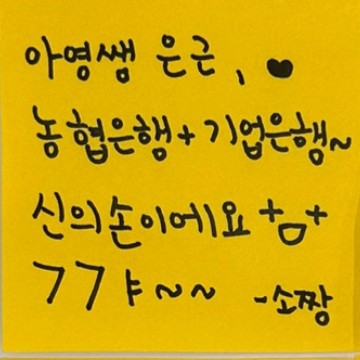 아영쌤 은근, ♥
농협은행+기업은행~
신의손이에요 +ㅁ+
ㄱㄱ ㅑ~~ -소짱